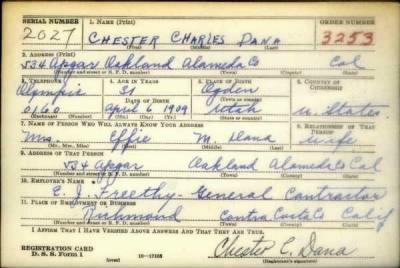 SERIAL NUMBER 1. NAME (Print) ORDER NUMBER
2027 CHESTER CHARLES DANA 3253
(First) (Middle) (Last)
2. ADDRESS (Print)
534 Apgar Oakland Alameda Co Cal
(Number and street or R. F. D. number) (Town) (County) (State)
3. TELEPHONE 4. AGE IN YEARS 5. PLACE OF BIRTH 6. COUNTRY OF CITIZENSHIP
Olympic 31 Ogden
DATE OF BIRTH (Town or county)
0160 April 6 1909 Utah U. States
(Exchange) (Number) (Mo.) (Day) (Yr.) (State or country)
7. NAME OF PERSON WHO WILL ALWAYS KNOW YOUR ADDRESS 8. RELATIONSHIP OF THAT PERSON
Mrs. Effie M. Dana wife
(Mr., Mrs., Miss) (First) (Middle) (Last)
9. ADDRESS OF THAT PERSON
534 Apgar Oakland Alameda Co Cal
(Number and street or R. F. D. number) (Town) (County) (State)
10. EMPLOYER'S NAME
E. J. Freethy - General Contractor
11. PLACE OF EMPLOYMENT OR BUSINESS
Richmond Contra Costa Co Calif
(Number and street or R. F. D. number) (Town) (County) (State)
I AFFIRM THAT I HAVE VERIFIED ABOVE ANSWERS AND THAT THEY ARE TRUE.
REGISTRATION CARD
D. S. S. Form 1 (over) Chester C. Dana
(Registrant's signature)